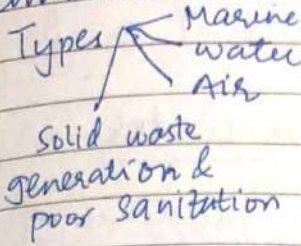 Types
Marine
water
Air
Solid waste
generation &
poor sanitution